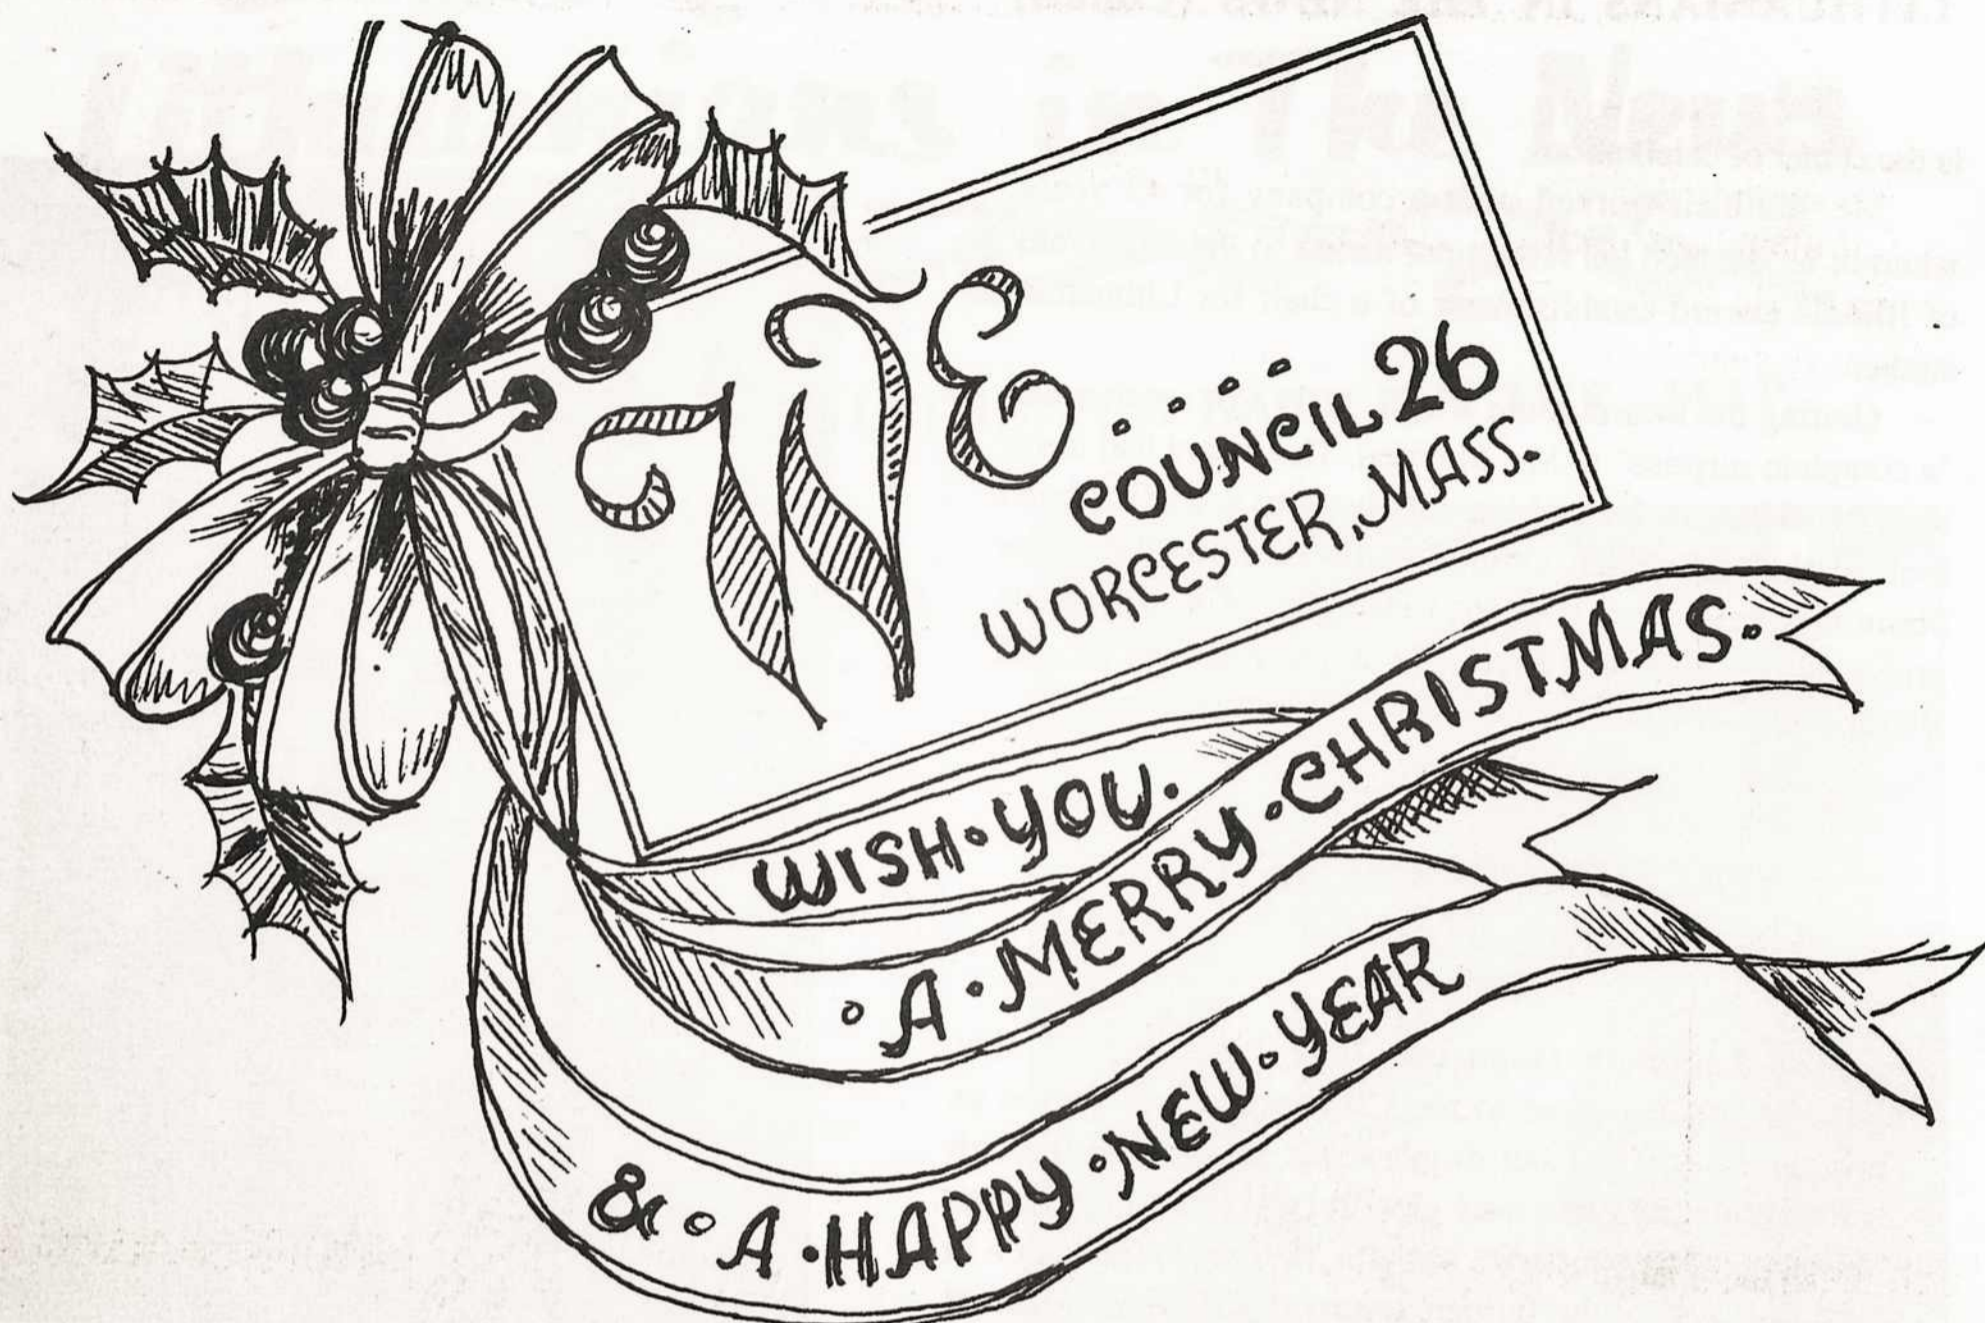 WE....
COUNCIL 26
WORCESTER, MASS.
WISH•YOU.
•A•MERRY•CHRISTMAS.
&•A•HAPPY•NEW•YEAR